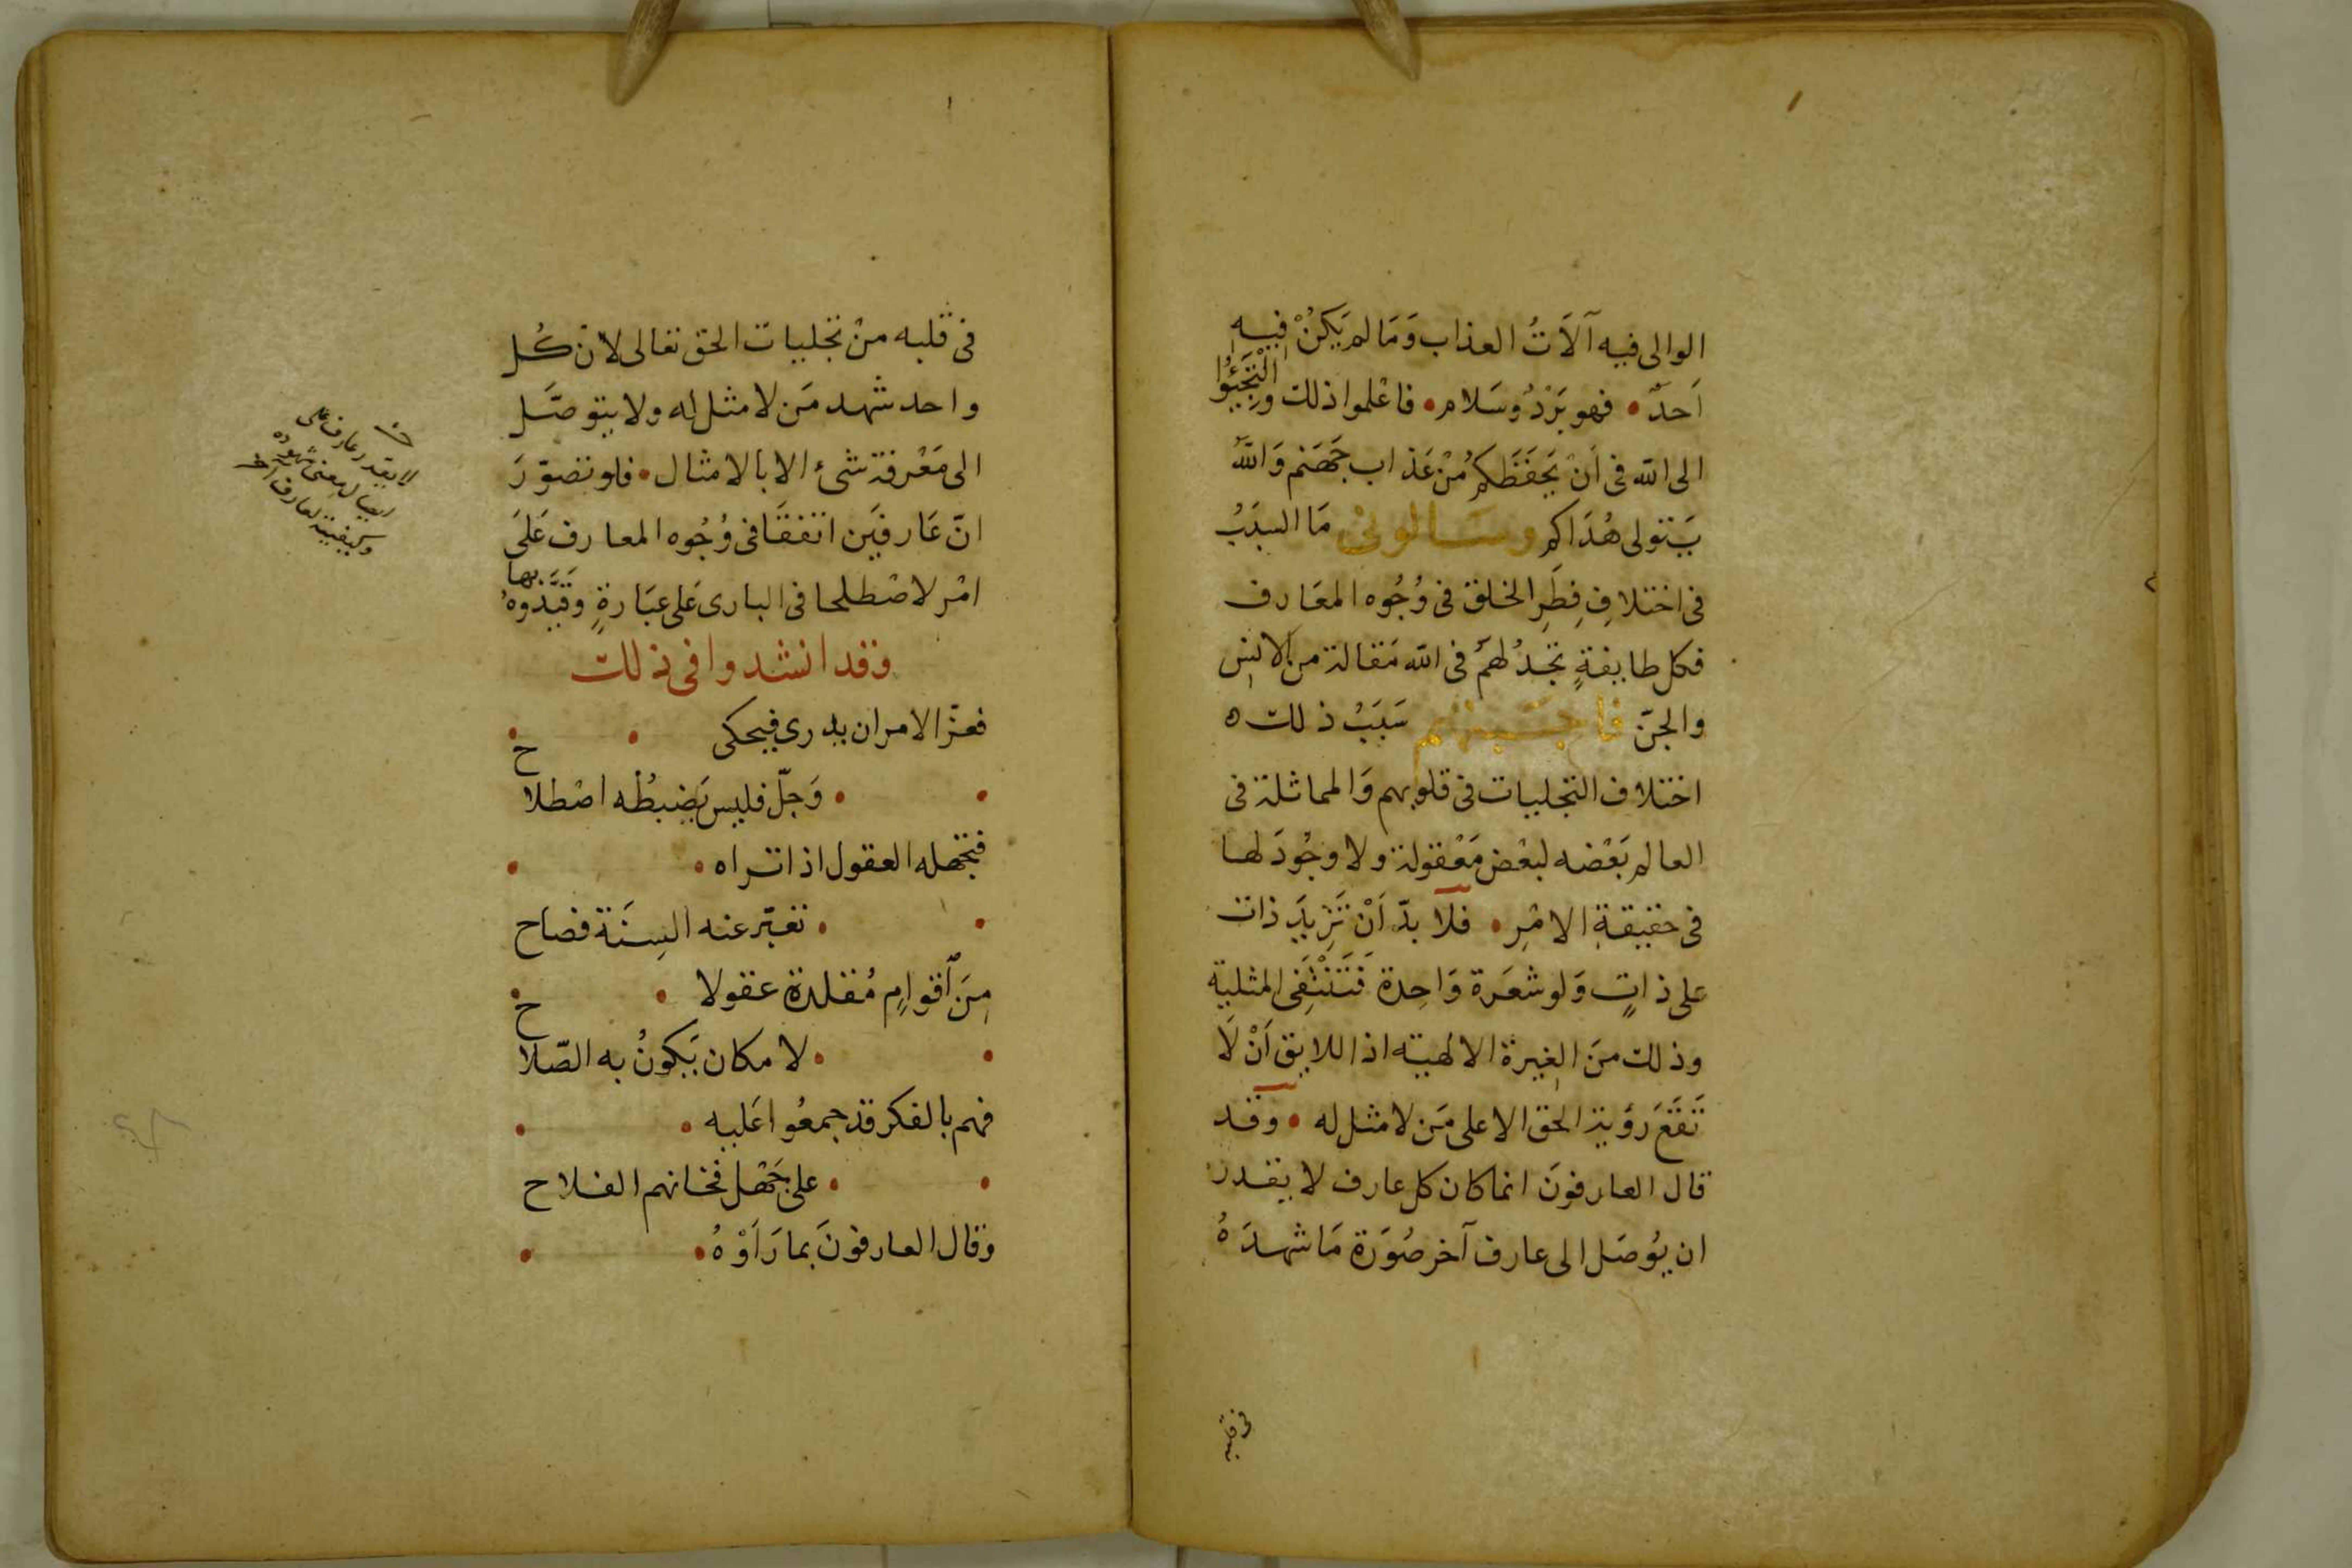 الوالى فيه آلَاتُ العذاب وَمَا لم يَكُنْ فِيهِ
اَحدٌ • فهو بَرْدٌ وسَلام • فاعْلموا ذلك والْتَجِئُوا
الى الله فى اَنْ يَحفَظكمُ مْن عَذاب جَهَنم وَاللهُ
يَتولى هُدَاكم وسَالونى مَا السبَبُ
فى اختلافِ فِطَرِ الخلق فى وُجُوه المعَارف
فكل طايفةٍ تجدُ لهمْ فى الله مَقالة من الانِس
والجنّ فاجَبتهم سَبَبُ ذلك ه
اختلاف التجليات فى قلوبهم وَالمماثلة فى
العالم بَعْضه لبعْض مَعْقولة ولا وجُودَ لها
فى حقيقةِ الامْرِ • فلا بدّ اَنْ تَزِيدَ ذات
على ذاتٍ وَلو شعَرة وَاحِدة فَتَنْتَفِى المثلية
وذلك منَ الغِيرة الالهيته اذ اللايق اَنْ لَا
تَقَعَ رؤية الحق الا على مَن لا مثل له • وقد
قال العارفونَ انما كان كل عارف لا يقدر
ان يُوصَل الى عارف آخر صُوَرَة مَا شهدَهُ
فى قلبه
فى قلبه منْ تجليات الحق تعالى لان كُل
واحد شهد مَن لا مثل له ولا يتوصَّل
الى مَعْرفة شىء الا بالامثال • فلو تصوّرَ
انّ عَارفَين اتفقَا فى وُجُوه المعارف عَلَى
امْر لاصْطلحا فى البارى عَلى عبَارةٍ وقَيَّدوهُ بها
وقد انشدوا فى ذلك
فعزّ الامر ان يدرى فيحكى •
• • وَجلّ فليس يَضبطُه اصْطلاح
فتجهله العقول اذا تراه •
• • تعبّر عنه السِنَة فصاح
مِنَ اقوامٍ مُقلدة عقولا •
• • لامكان يَكونُ به الصّلاح
فهم بالفكر قد جمعُوا عَليه •
• • على جَهْل فخانهم الفلاح
وقال العارفونَ بما رَاَوْهُ •
لا يقدر عارف على
ايصال معنى شهوده
وكيفيته لعارف آخر